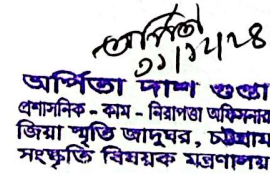 অর্পিতা
১১/১২/২৪
অর্পিতা দাশ গুপ্তা
প্রশাসনিক - কাম - নিরাপত্তা অফিসার
জিয়া স্মৃতি জাদুঘর, চট্টগ্রাম
সংস্কৃতি বিষয়ক মন্ত্রণালয়